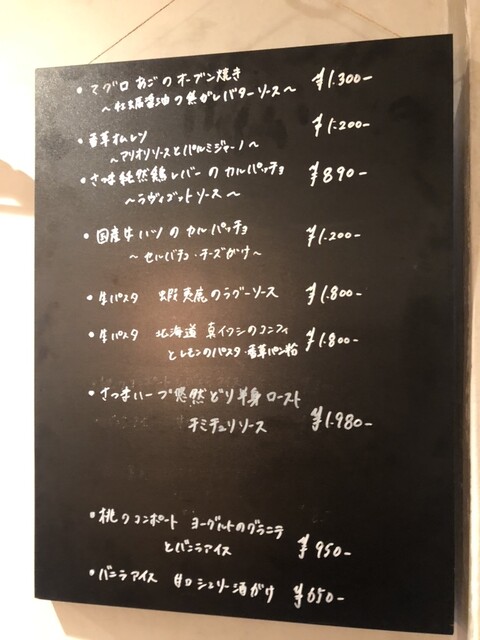 ・マグロ あごのオーブン焼き ¥1.300-
〜牡蠣醤油の焦がしバターソース〜
・香草オムレツ ¥1.200-
〜アリオリソースとパルミジャーノ〜
・さつま純然鶏レバーのカルパッチョ ¥890-
〜ラヴィゴットソース〜
・国産牛ハツのカルパッチョ ¥1.200-
〜セルバチコ・チーズがけ〜
・生パスタ 蝦夷鹿のラグーソース ¥1.800-
・生パスタ 北海道 真イワシのコンフィ
とレモンのパスタ・香草パン粉 ¥1.800-
・さつまハーブ悠然どり半身ロースト
チミチュリソース ¥1.980-
・桃のコンポート ヨーグルトのグラニテ
とバニラアイス ¥950-
・バニラアイス 甘口シェリー酒がけ ¥650-